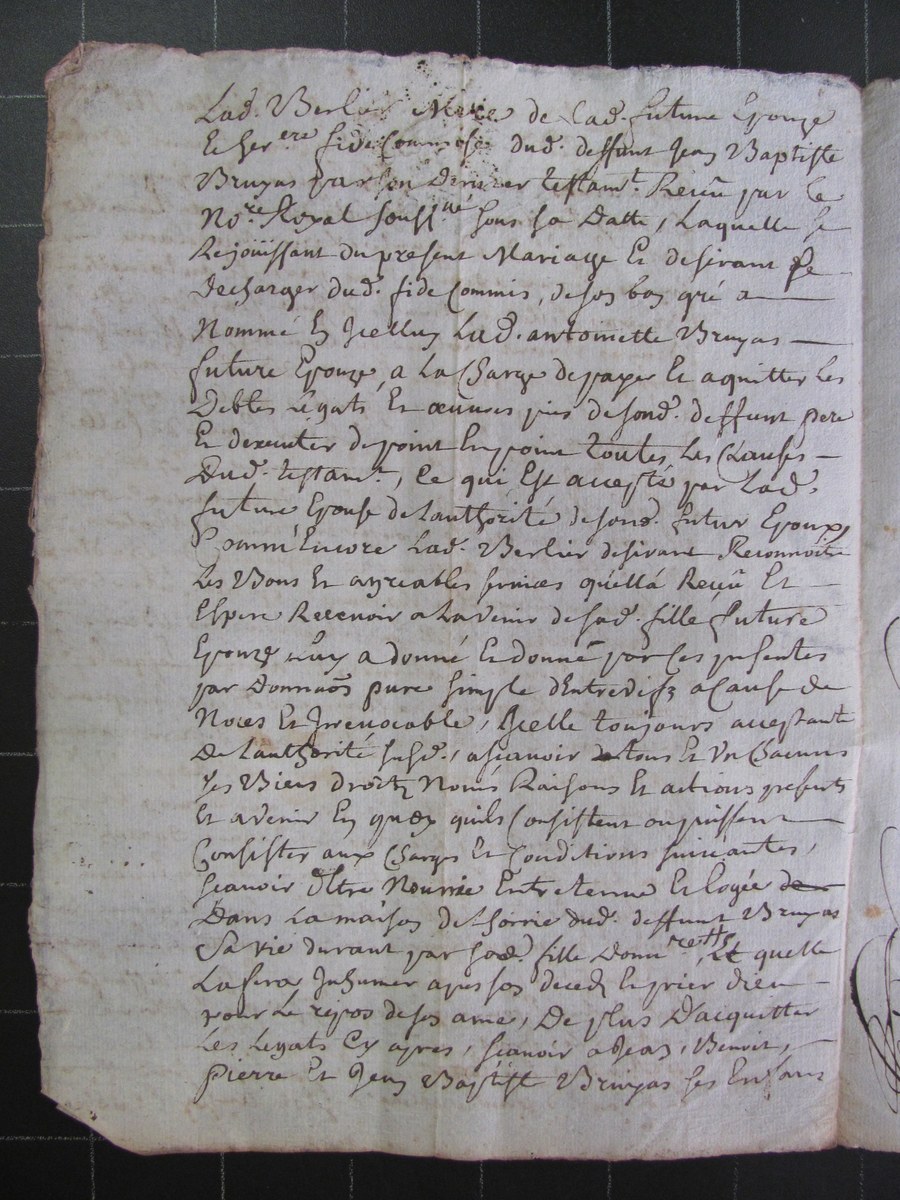 Lad. Berlier Mere de Lad. future Epouze
Et her.ere fideicommise dud. deffunt Jean Baptiste
Bruyas par son Dernier testam.t Reçeu par le
No.re Royal soussigné sous sa Datte, Laquelle se
Rejoüissant du present Mariage Et desirant se
decharger dud. fideCommis, de son bon gré a
Nommé En Icelluy Lad. antoinette Bruyas
future Epouze, a La Charge de payer Et aquitter les
Debtes Legats Et œuvres pies de sond. deffunt pere
Et dexecuter de point En point toutes les Clauses
Dud. testam.t, Ce qui Est accepté par Lad.
future Epouse de Lauthorité de sond. futur Epoux,
Comme Encore Lad. Berlier desirant Reconnoitre
Les Bons Et agreables services quella Reçeu Et
Espere Recevoir a Lavenir de sad. fille future
Epouze Luy a donné Et donne par ses presentes
par Donnaõn pure simple d'Entrevifz a Cause de
Noces Et Irrevocable, Icelle toujours acceptante
De Lauthorité susd., ascavoir de tous Et Un Chacuns
ses Biens droitz Noms Raisons Et actions presents
Et avenir En quoy quils Consistent ou puissent
Consister aux Charges Et Conditions suivantes,
scavoir d'Etre Nourrie Entretenue Et logée
Dans La maison de Thorrie dud. deffunt Bruyas
Sa vie durant par sad. fille Donn.re, Et quelle
La fera Inhumer apres son decedz Et prier dieu
pour Le repos de son ame, De plus D'acquitter
Les Legats Cy apres, scavoir a Jean, Benoit,
Pierre Et Jean Baptiste Bruyas ses Enfans